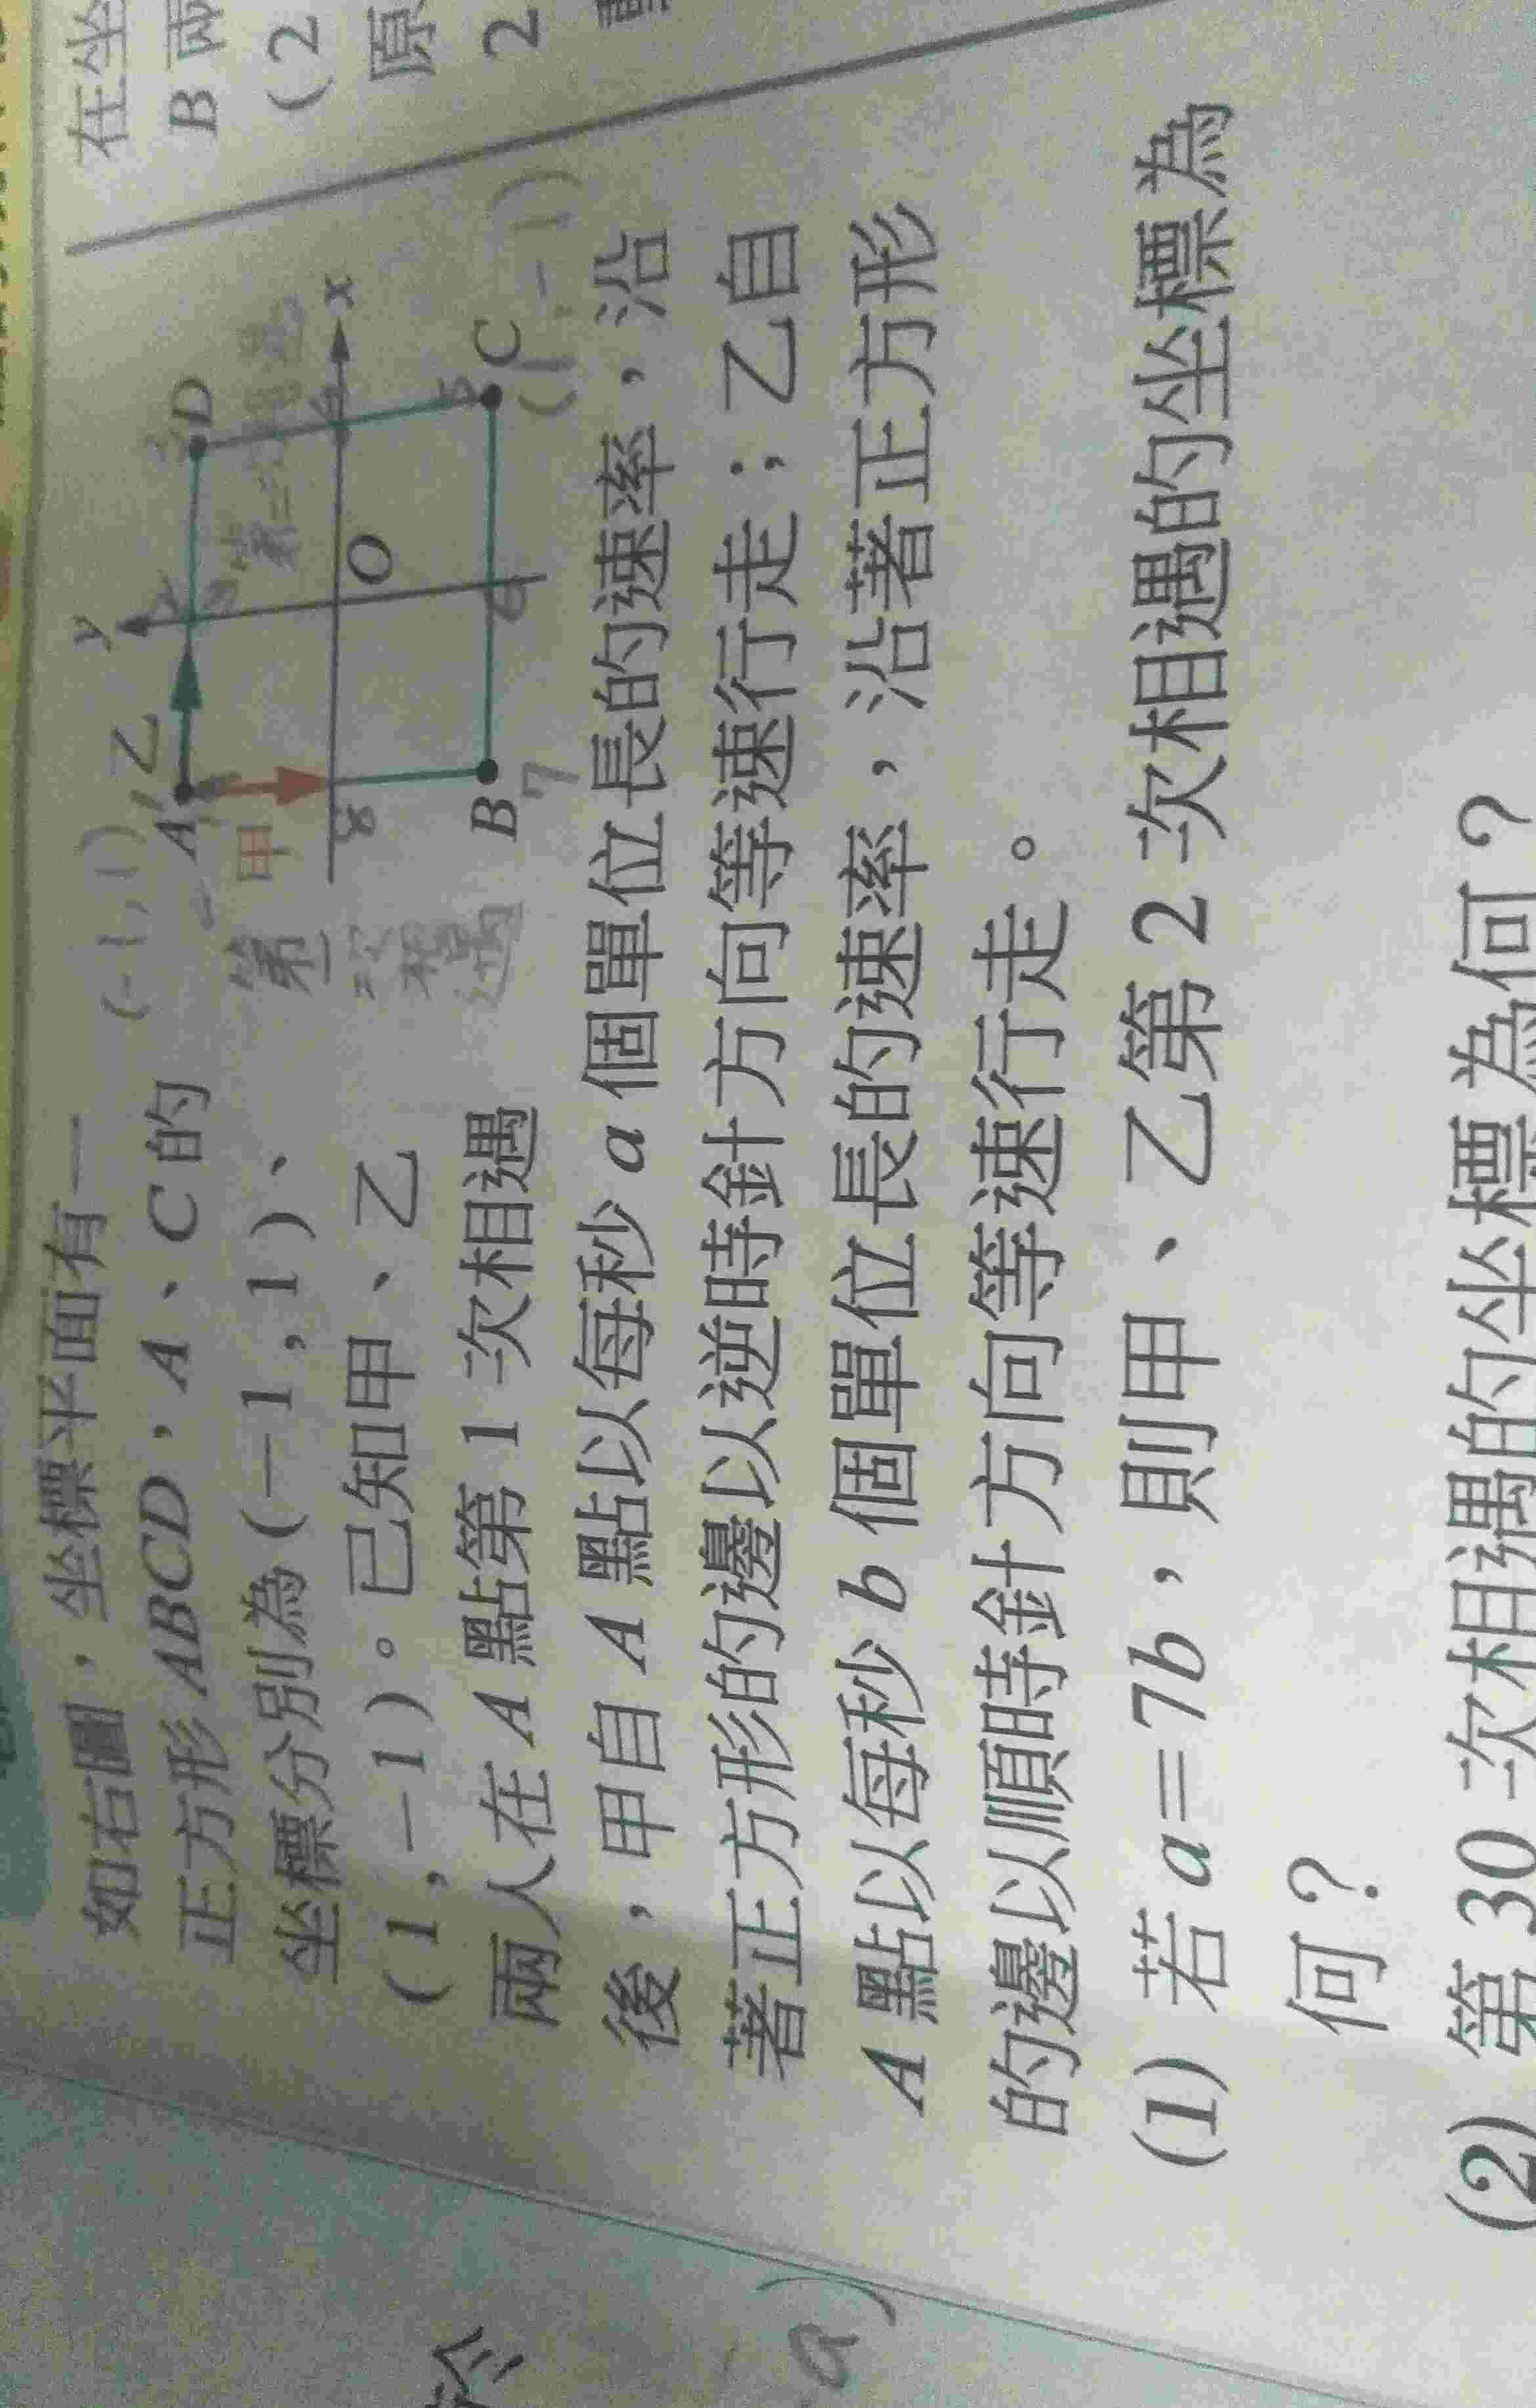 如右圖，坐標平面有一
正方形 ABCD，A、C 的
坐標分別為 (−1 , 1)、
(1 , −1)。已知甲、乙
兩人在 A 點第 1 次相遇
後，甲自 A 點以每秒 a 個單位長的速率，沿
著正方形的邊以逆時針方向等速行走；乙自
A 點以每秒 b 個單位長的速率，沿著正方形
的邊以順時針方向等速行走。
(1) 若 a=7b，則甲、乙第 2 次相遇的坐標為
何？
(2) 第 30 次相遇的坐標為何？
(-1,1)
A
乙
y
D
甲
第一
次
相遇
8
O
x
B
7
6
C
(1,-1)
在坐
B 兩
(2
原
2
a)